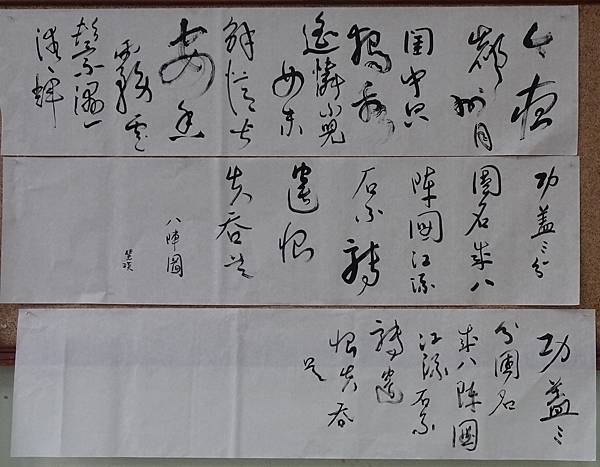 今夜
鄜州月
閨中只
獨看
遙憐小兒
女未
解憶長
安香
霧雲
鬟濕
清輝
功蓋三分
國名成八
陣圖江流
石不轉
遺恨
失吞吳
八陣圖
功蓋三
分國名
成八陣圖
江流石不
轉遺
恨失吞
吳